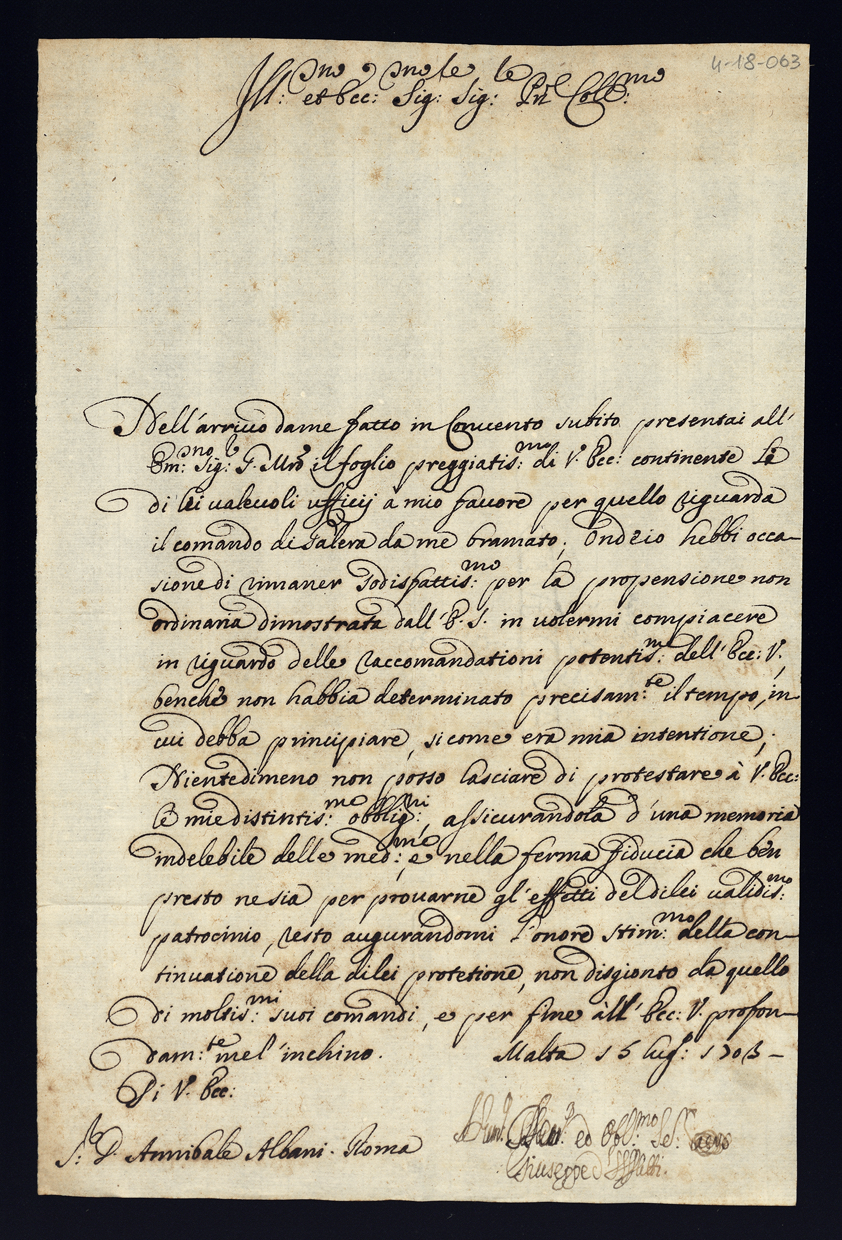 4-18-063
Ill:mo et Ecc:mo Sig:re Sig:re P'n'e Col'mo
Dell'arrivo dame fatto in Convento subito presentai all'
Em:mo Sig:r G. Mro il foglio preggiatis:mo di V. Ecc: continente li
di lei valevoli ufficij à mio favore per quello riguarda
il comando di Galera da me bramato; Ond'io hebbi occa-
sione di rimaner sodisfattis:mo per la propensione non
ordinaria dimostrata dall'E. S. in volermi compiacere
in riguardo delle raccomandationi potentis:me dell'Ecc: V.,
benche non habbia determinato precisam:te il tempo, in
cui debba principiare, sicome era mia intentione;
Nientedimeno non posso lasciare di protestare à V. Ecc:
le mie distintis:me obblig:ni, assicurandola d'una memoria
indelebile delle med:me, e nella ferma fiducia che ben
presto ne sia per provarne gl'effetti del dilei validis:mo
patrocinio, resto augurandomi l'onore stim:mo della con-
tinuatione della dilei protetione, non disgionto da quello
di moltis:mi suoi comandi, e per fine all'Ecc: V. profon-
dam:te mel'inchino. Malta 15 lug:o 1703 -
Di V. Ecc:
S:r D. Annibale Albani. Roma
ed Obl:mo Se:r
Giuseppe d'